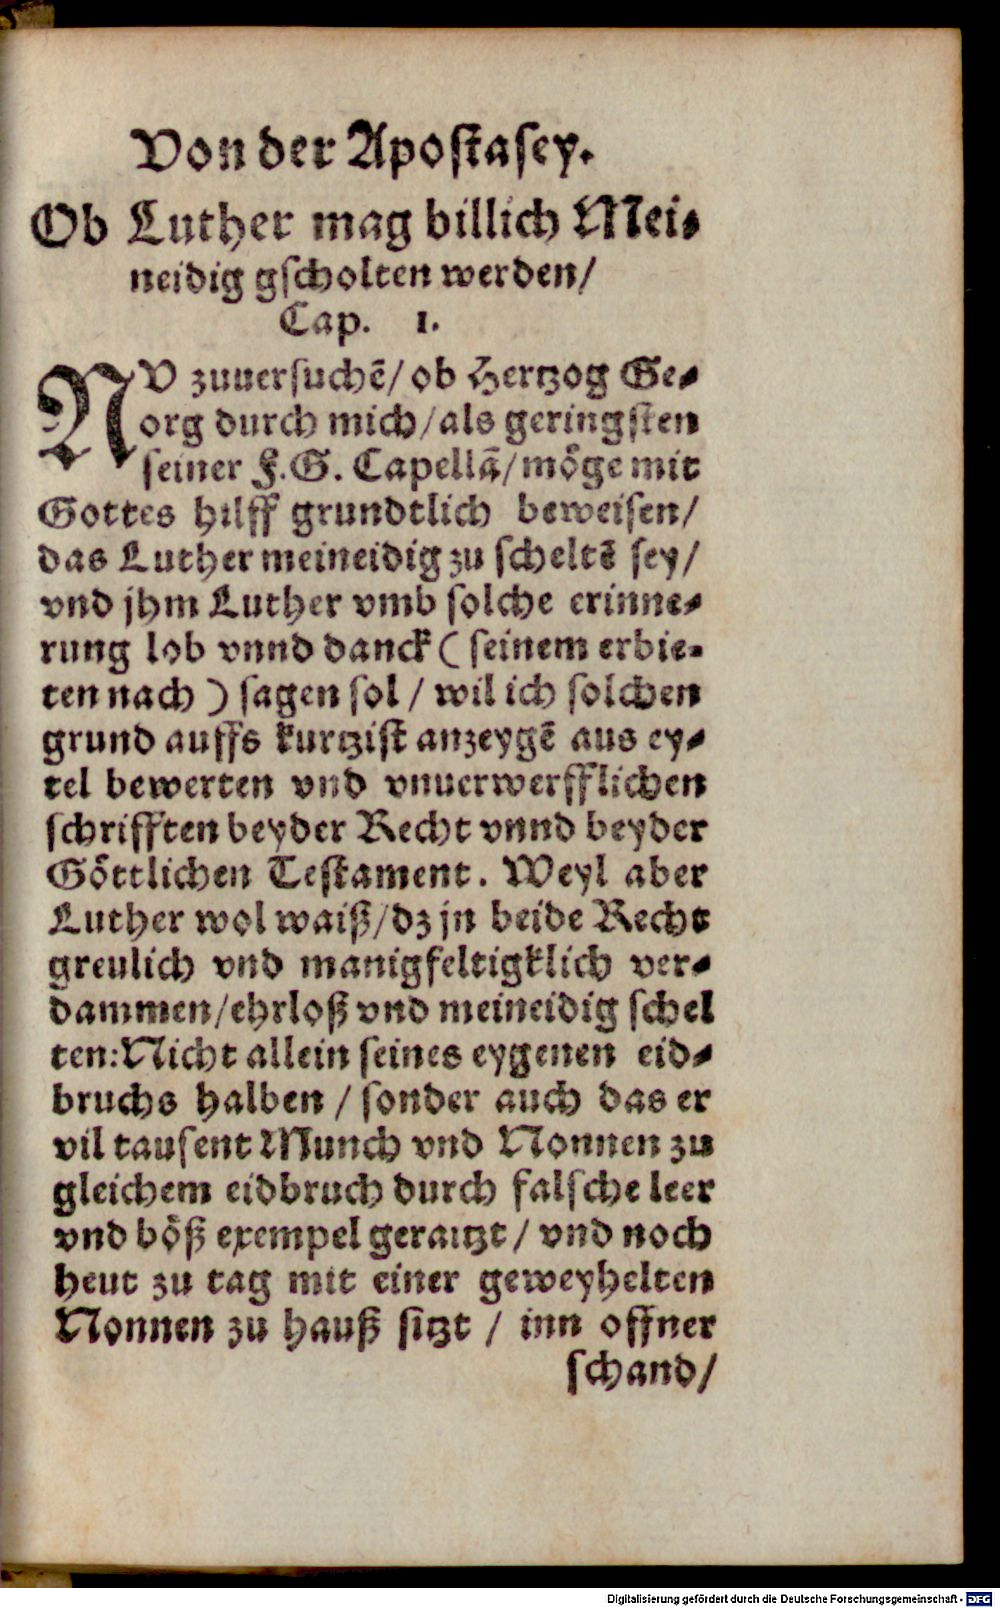 Von der Apostasey.
Ob Luther mag billich Mei⸗
neidig gscholten werden/
Cap. 1.
NV zuuersuchẽ/ ob Hertzog Ge⸗
org durch mich/als geringsten
seiner F.G. Capellã/ mőge mit
Gottes hilff grundtlich beweisen/
das Luther meineidig zu scheltẽ sey/
vnd jhm Luther vmb solche erinne⸗
rung lob vnnd danck ( seinem erbie⸗
ten nach ) sagen sol / wil ich solchen
grund auffs kurtzist anzeygẽ aus ey⸗
tel bewerten vnd vnuerwerfflichen
schrifften beyder Recht vnnd beyder
Göttlichen Testament. Weyl aber
Luther wol waiß/dz jn beide Recht
greulich vnd manigfeltigklich ver⸗
dammen/ehrloß vnd meineidig schel
ten:Nicht allein seines eygenen eid⸗
bruchs halben / sonder auch das er
vil tausent Munch vnd Nonnen zu
gleichem eidbruch durch falsche leer
vnd böß exempel geraitzt / vnd noch
heut zu tag mit einer geweyhelten
Nonnen zu hauß sitzt / inn offner
schand/
Digitalisierung gefördert durch die Deutsche Forschungsgemeinschaft - DFG